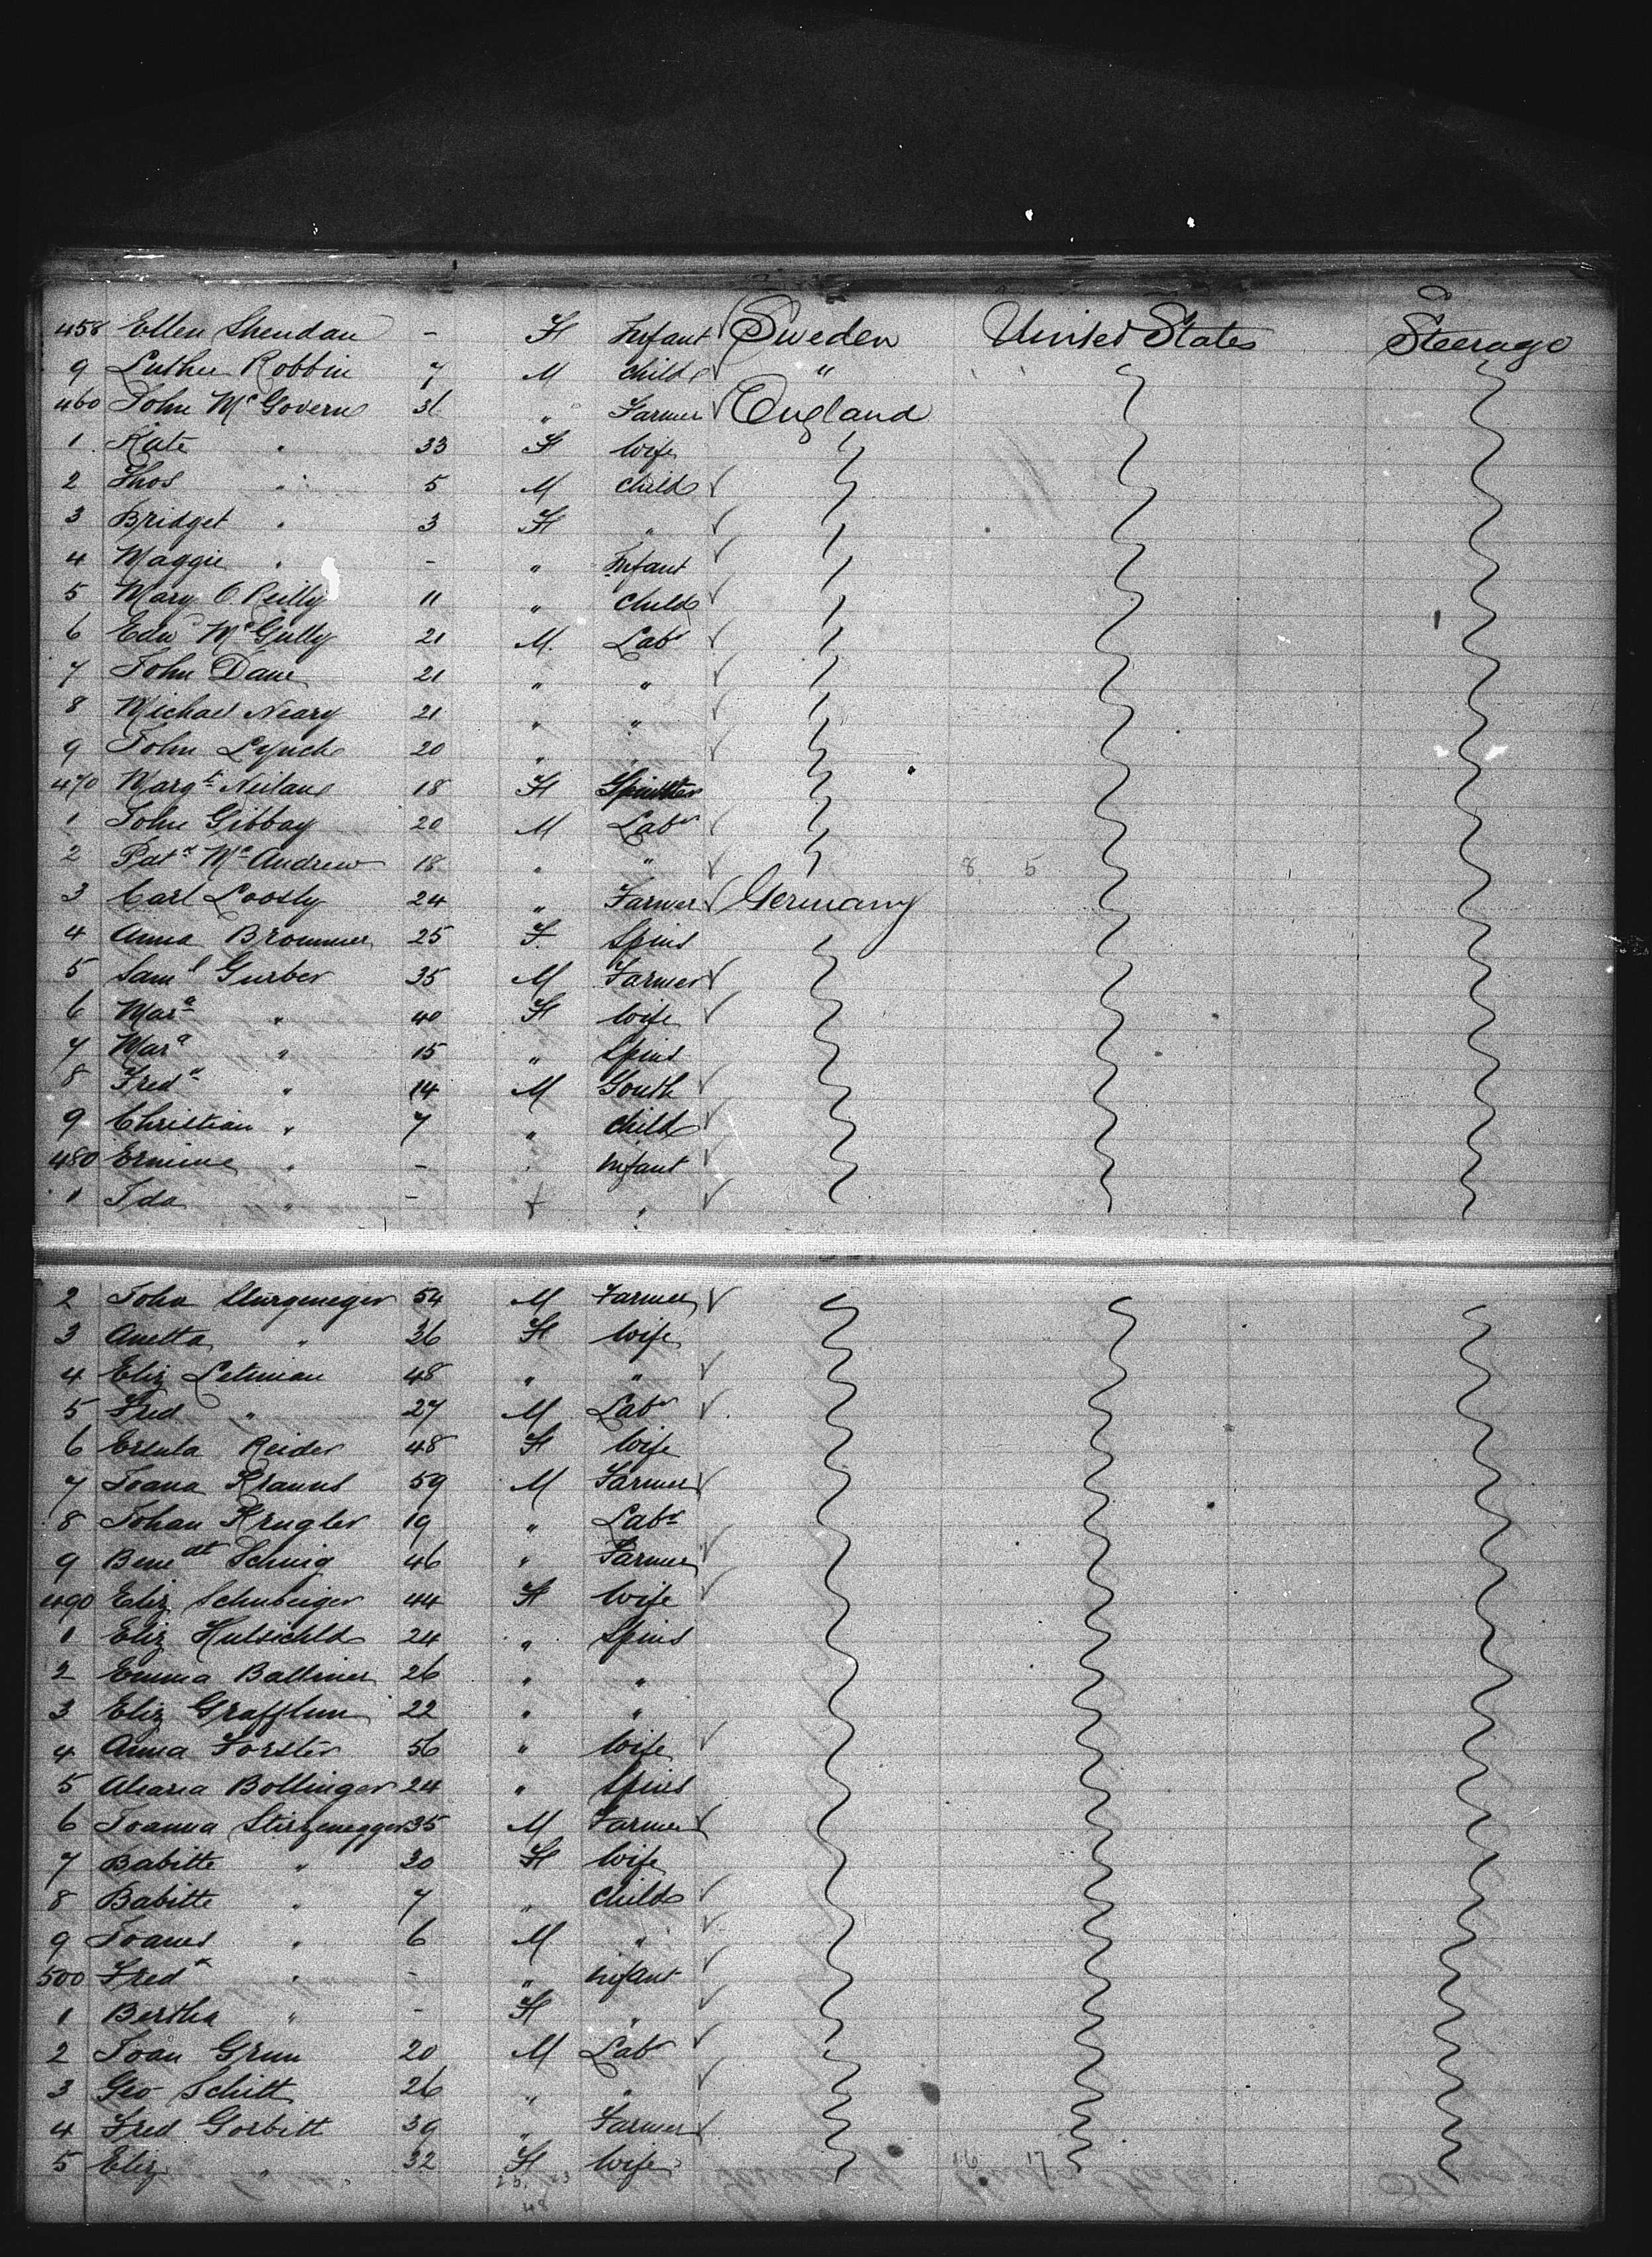 458 Ellen Sheridan - F Infant Sweden United States Steerage
9 Luther Robbin 7 M child "
460 John McGovern 36 " Farmer England
1 Kate " 33 F Wife
2 Thos " 5 M child
3 Bridget " 3 F "
4 Maggie " - " Infant
5 Mary O. Reilly 11 " child
6 Edw McGully 21 M. Labr
7 John Dane 21 " "
8 Michael Neary 21 " "
9 John Lynch 20 "
470 Margt Neilane 18 F Spinster
1 John Gibbay 20 M Labr
2 Patk McAndrew 18 " " 8 5
3 Carl Loosly 24 " Farmer Germany
4 Anna Brommer 25 F. Spins
5 Saml Gurber 35 M Farmer
6 Mara " 40 F Wife
7 Mara " 15 " Spins
8 Fredk " 14 M Youth
9 Christian " 7 " child
480 Ermine " - " Infant
1 Ida " - f "
2 Joha Sturgeneger 54 M Farmer
3 Anetta " 36 F Wife
4 Eliz Letiman 48 " "
5 Fred " 27 M Labr
6 Ersula Reider 48 F Wife
7 Joana Kranns 59 M Farmer
8 Johan Krugler 19 " Labr
9 Beneat Schnig 46 " Farmer
490 Eliz Schubeiger 44 F Wife
1 Eliz 24 " Spins
2 Emma Ballmer 26 " "
3 Eliz Grafflun 22 " "
4 Anna Forster 56 " Wife
5 Bollinger 24 " Spins
6 Joanna Stirzenegger 35 M Farmer
7 Babitte " 30 F Wife
8 Babitte " 7 " child
9 Joanes " 6 M "
500 Fredk " - " Infant
1 Bertha " - F "
2 Joan Grun 20 M Labr
3 Geo Schitt 26 " "
4 Fred Gorbitt 39 " Farmer
5 Eliz " 32 F Wife 16 17
25. 23
48